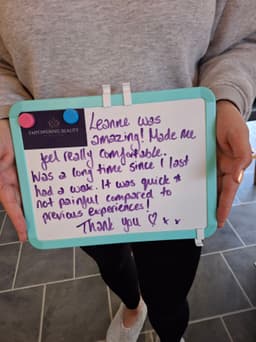 EMPOWERING BEAUTY
Leanne was
amazing! Made me
feel really comfortable.
Was a long time since I last
had a wax. It was quick &
not painful compared to
previous experiences!
Thank you ♡ x x